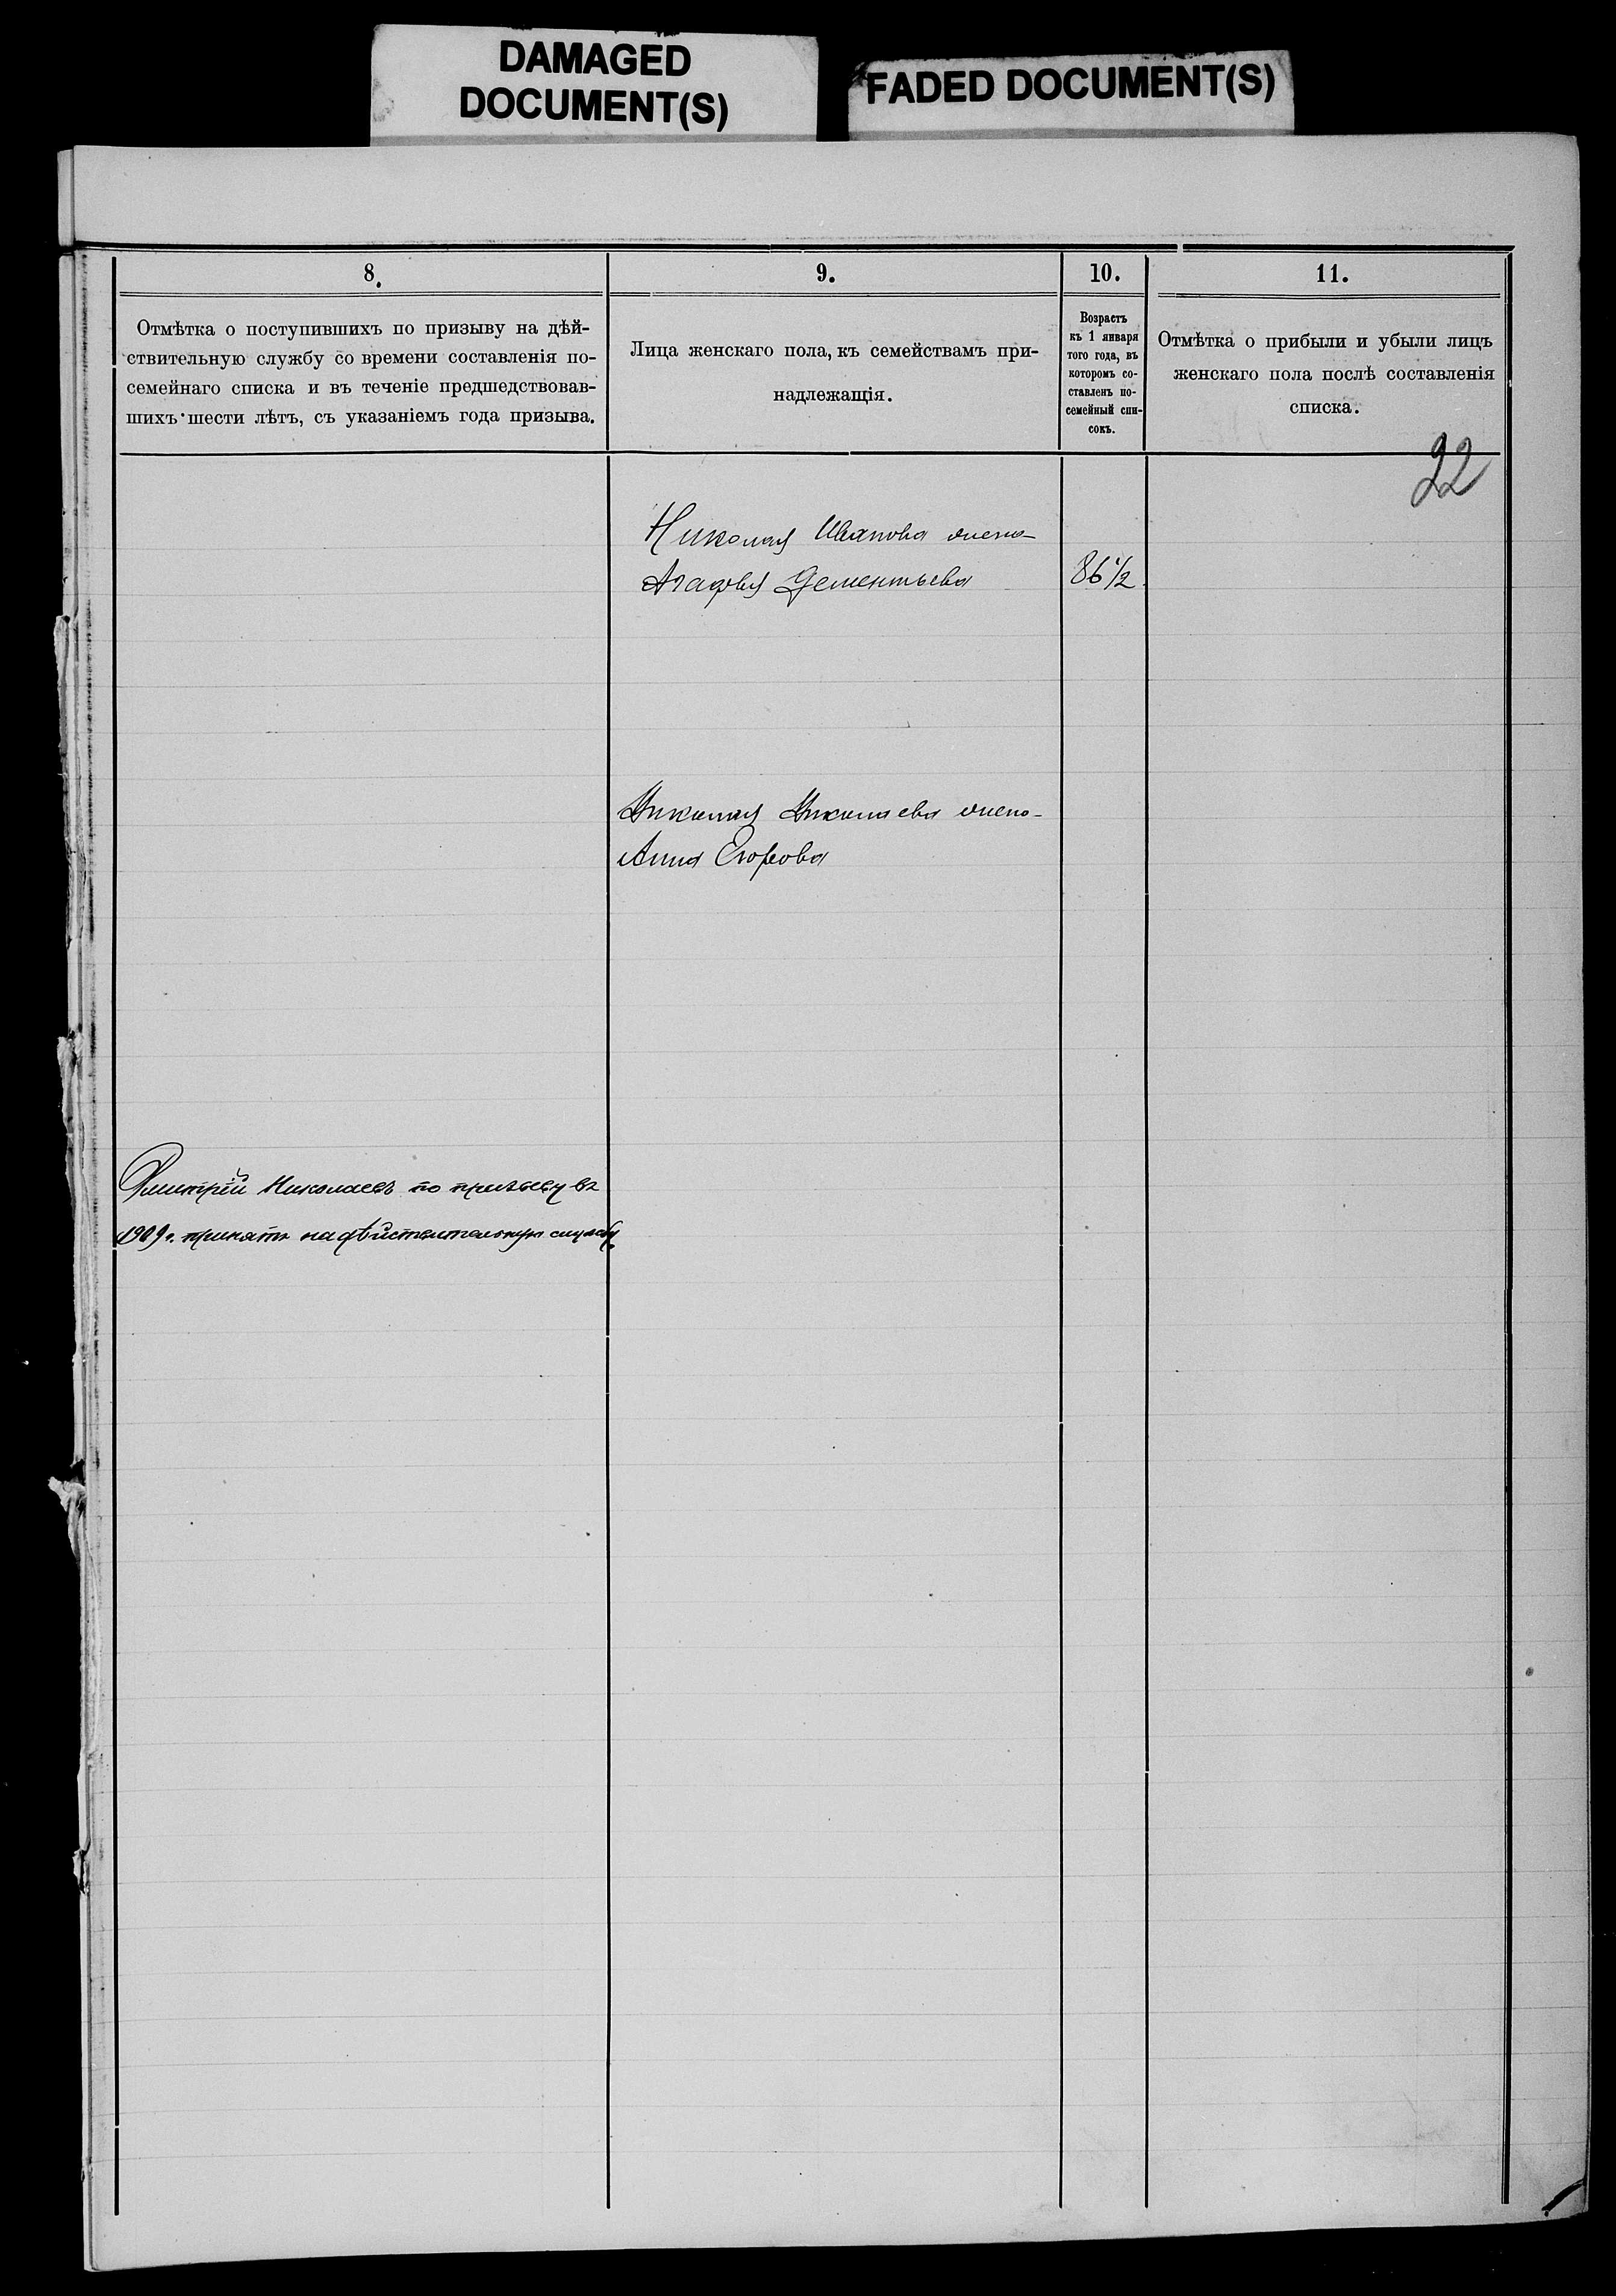 DAMAGED
DOCUMENT(S)
FADED DOCUMENT(S)
8.
Отмѣтка о поступившихъ по призыву на дѣй-
ствительную службу со времени составленія по-
семейнаго списка и въ теченіе предшедствовав-
шихъ шести лѣтъ, съ указаніемъ года призыва.
9.
Лица женскаго пола, къ семействамъ при-
надлежащія.
10.
Возрастъ
къ 1 января
того года, въ
которомъ со-
ставленъ по-
семейный спи-
сокъ.
11.
Отмѣтка о прибыли и убыли лицъ
женскаго пола послѣ составленія
списка.
22
Николая Иванова жена
Агафья Дементьева
86½
Николая Николаева жена
Анна Егорова
Дмитрій Николаевъ по призыву въ
1909 г. принятъ на дѣйствительную службу.